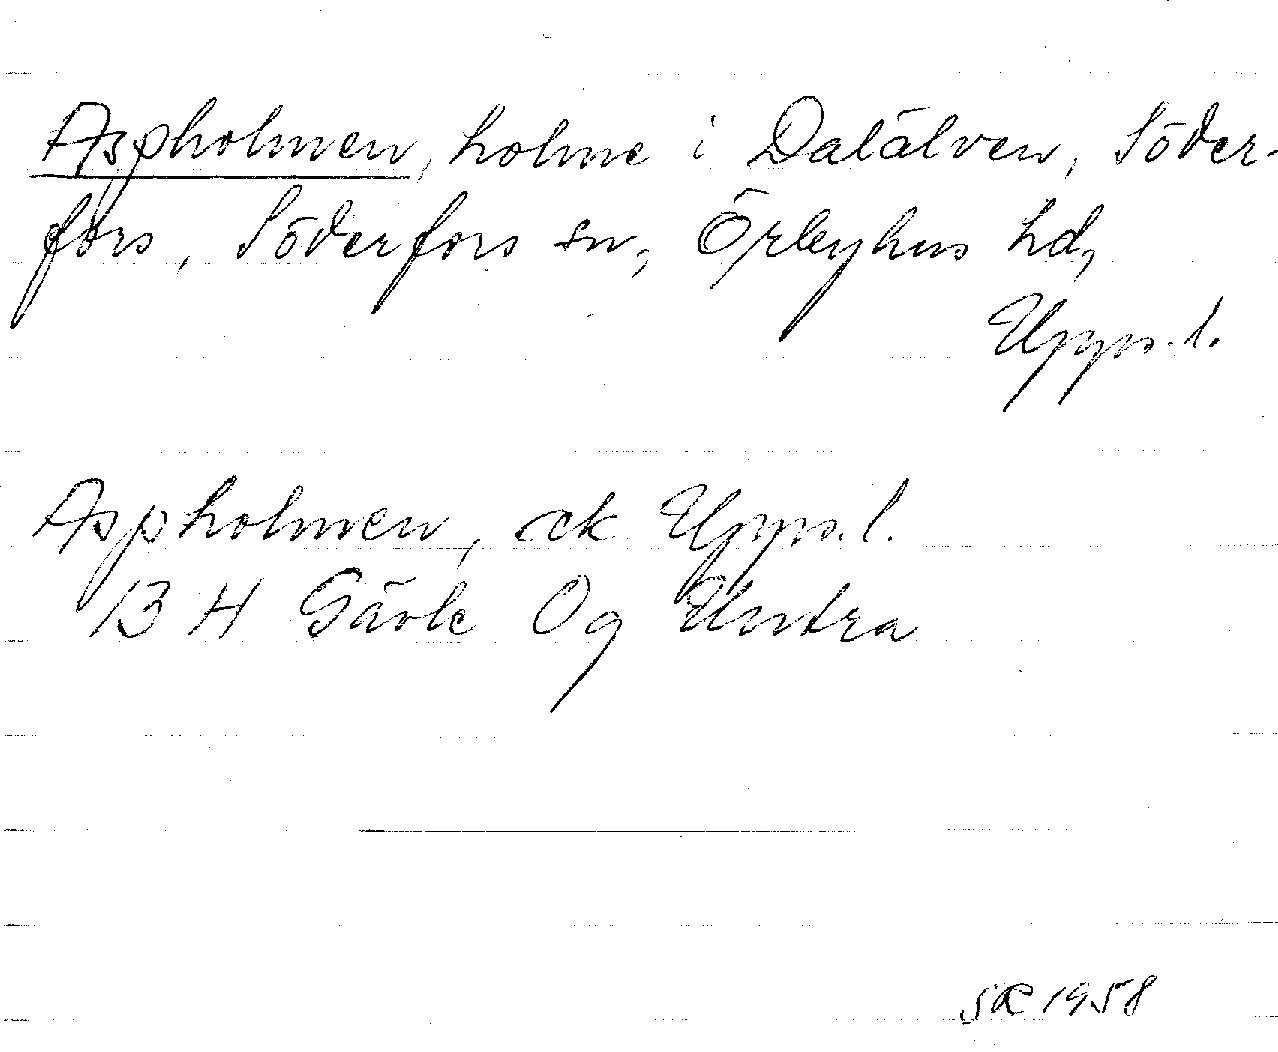 Aspholmen, holme i Dalälven, Söder-
fors, Söderfors sn, Örbyhus hd,
Upps.l.
Aspholmen, ek Upps.l.
13 H Gävle Og Untra
SR 1958